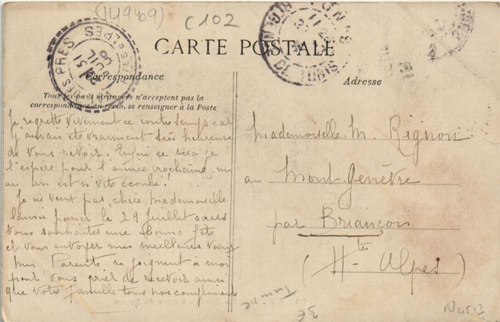 (14989)
C102
CARTE POSTALE
Correspondance
Adresse
Tous les pays étrangers n'acceptent pas la
correspondance au recto, se renseigner à la Poste
Je regrette vivement ce contre temps car
j'aurais été vraiment très heureuse
de vous revoir. Enfin ce sera je
l'espère pour l'année prochaine, un
an est si vite écoulé.
Je ne veux pas, chère Mademoiselle
laisser passer le 29 Juillet sans
vous souhaiter une bonne fête
et vous envoyer mes meilleurs vœux
Mes Parents se joignent à moi
pour vous prier de recevoir ainsi
que votre famille tous nos compliments
Mademoiselle M. Rignon
au Mont-Genèvre
par Briançon
(Htes Alpes)
Tunisie
3E